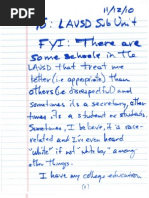 11/12/10
To: LAUSD Sub Unit
FYI: There are
some schools in the
LAUSD that treat me
better (i.e. appropriate) than
others (i.e. disrespectful) and
sometimes it's a secretary, other
times it's a student or students.
Sometimes, I believe, it is race-
related and I've even heard
"white" if not "white boy," among
other things.
I have my college education